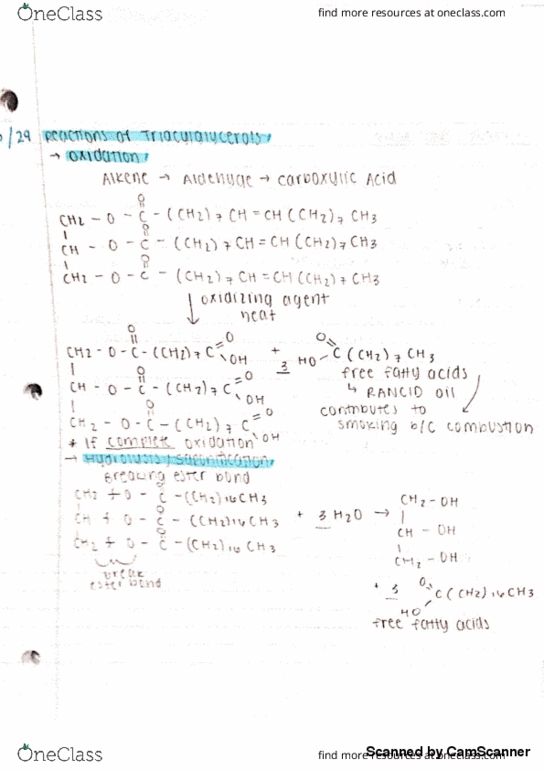 OneClass
find more resources at oneclass.com
/29 Reactions of Triacylglycerols
→ oxidation
Alkene → Aldehyde → Carboxylic Acid
O
CH2 - O - C - (CH2)7 CH = CH (CH2)7 CH3
O
CH - O - C - (CH2)7 CH = CH (CH2)7 CH3
O
CH2 - O - C - (CH2)7 CH = CH (CH2)7 CH3
↓ oxidizing agent
heat
CH2 - O - C - (CH2)7 C = O OH + 3 HO C (CH2)7 CH3
free fatty acids
CH - O - C - (CH2)7 C = O OH
↳ RANCID oil
contributes to
CH2 - O - C - (CH2)7 C = O OH
smoking b/c combustion
* If complete oxidation
→ Hydrolysis / saponification
Breaking ester bond
CH2 + O - C - (CH2)16 CH3
CH + O - C - (CH2)16 CH3 + 3 H2O →
CH2 + O - C - (CH2)16 CH3
CH2 - OH
CH - OH
CH2 - OH
break
ester bond
+ 3 O C (CH2)16 CH3
HO
free fatty acids
OneClass
find more resources at oneclass.com
Scanned by CamScanner